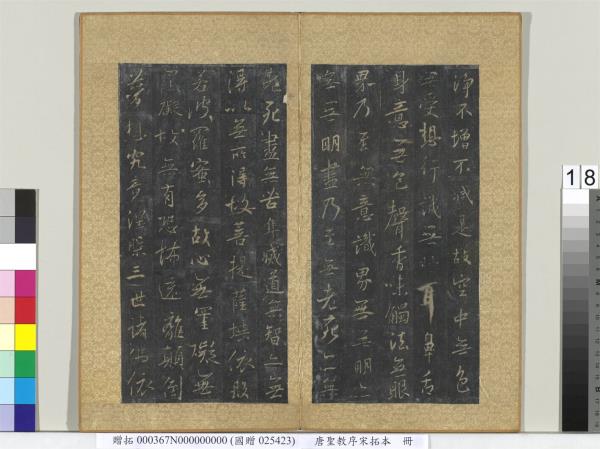 淨不增不減是故空中無色
無受想行識無眼耳鼻舌
身意無色聲香味觸法無眼
界乃至無意識界無無明亦
無無明盡乃至無老死亦無
老死盡無苦集滅道無智亦無
得以無所得故菩提薩埵依般
若波羅蜜多故心無罣礙無
罣礙故無有恐怖遠離顛倒
夢想究竟涅槃三世諸佛依
贈拓 000367N000000000 (國贈 025423) 唐聖教序宋拓本 冊
18